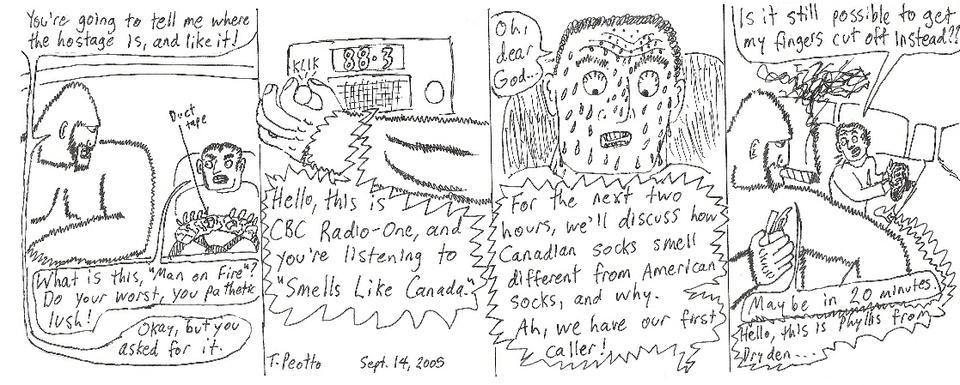 You're going to tell me where
the hostage is, and like it!
Duct
tape
What is this, "Man on Fire"?
Do your worst, you pathetic
lush!
Okay, but you
asked for it.
KLIK
88.3
Hello, this is
CBC Radio-One, and
you're listening to
"Smells Like Canada."
T. Peotto Sept. 14, 2005
Oh,
dear
God...
For the next two
hours, we'll discuss how
Canadian socks smell
different from American
socks, and why.
Ah, we have our first
caller!
Is it still possible to get
my fingers cut off instead??
Maybe in 20 minutes.
Hello, this is Phyllis from
Dryden...